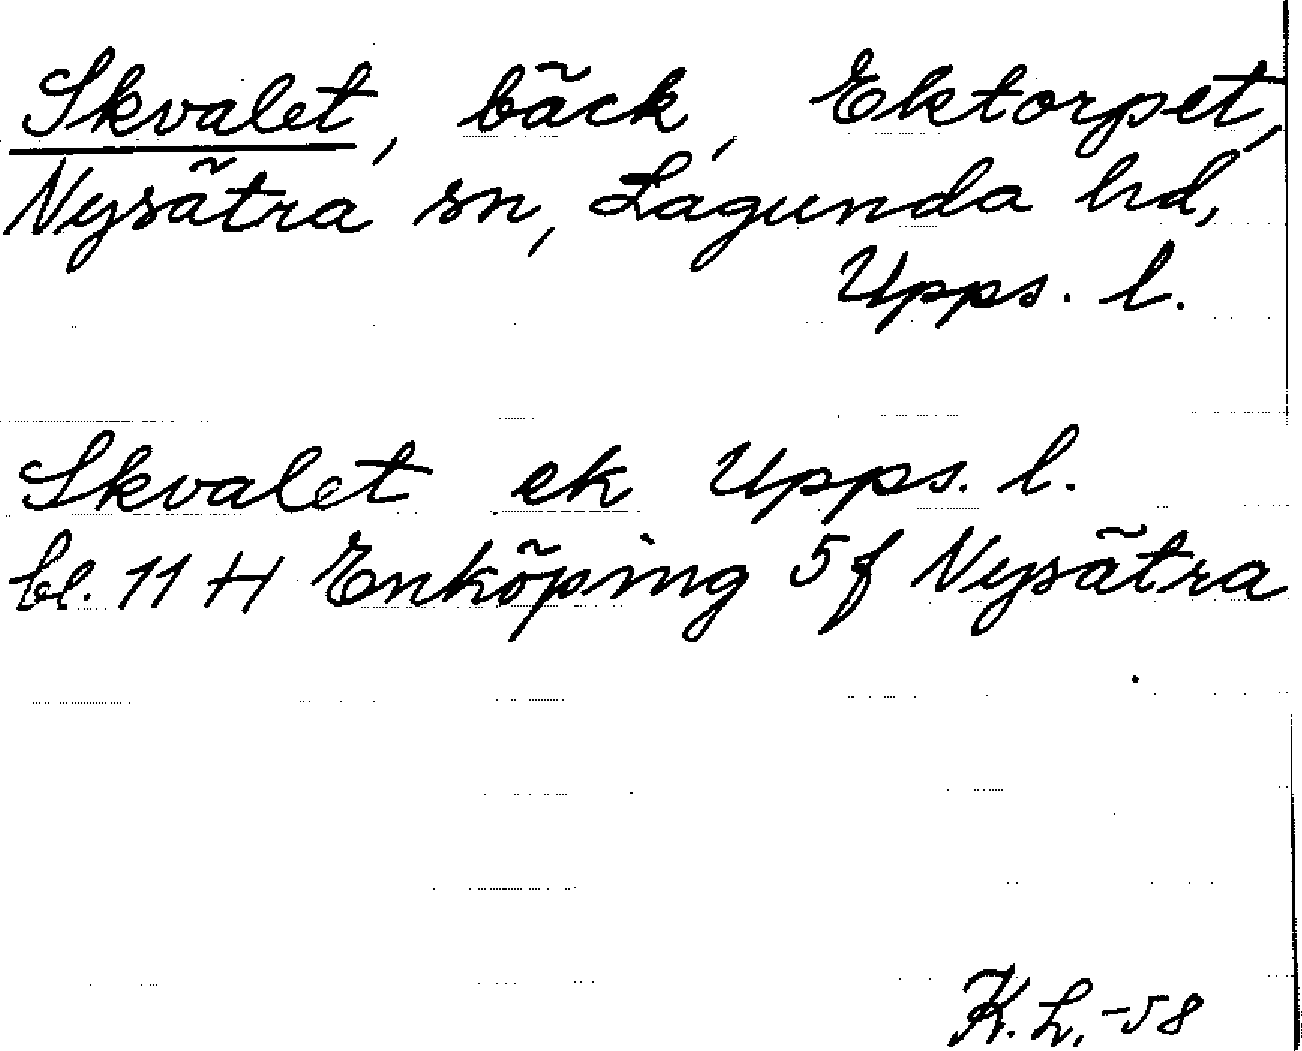 Skvalet, bäck, Ektorpet,
Nysätra sn, Lagunda hd,
Upps. l.
Skvalet ek Upps. l.
bl. 11 H Enköping 5f Nysätra
K. L. -58